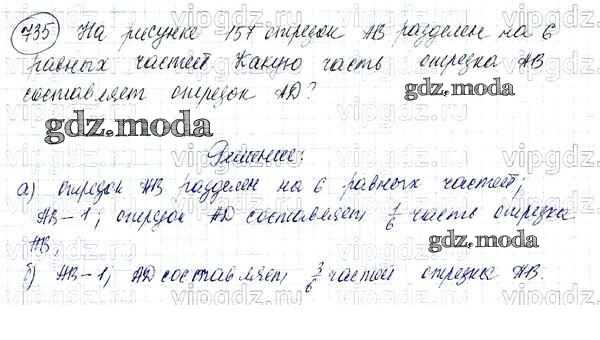 735 На рисунке 157 отрезок AB разделен на 6
равных частей. Какую часть отрезка AB
составляет отрезок AD?
gdz.moda
gdz.moda
Решение:
а) отрезок AB разделен на 6 равных частей;
AB-1; отрезок AD составляет 1/6 часть отрезка
AB,
gdz.moda
б) AB-1; AD составляет /6 частей отрезка AB.
vipgdz.ru